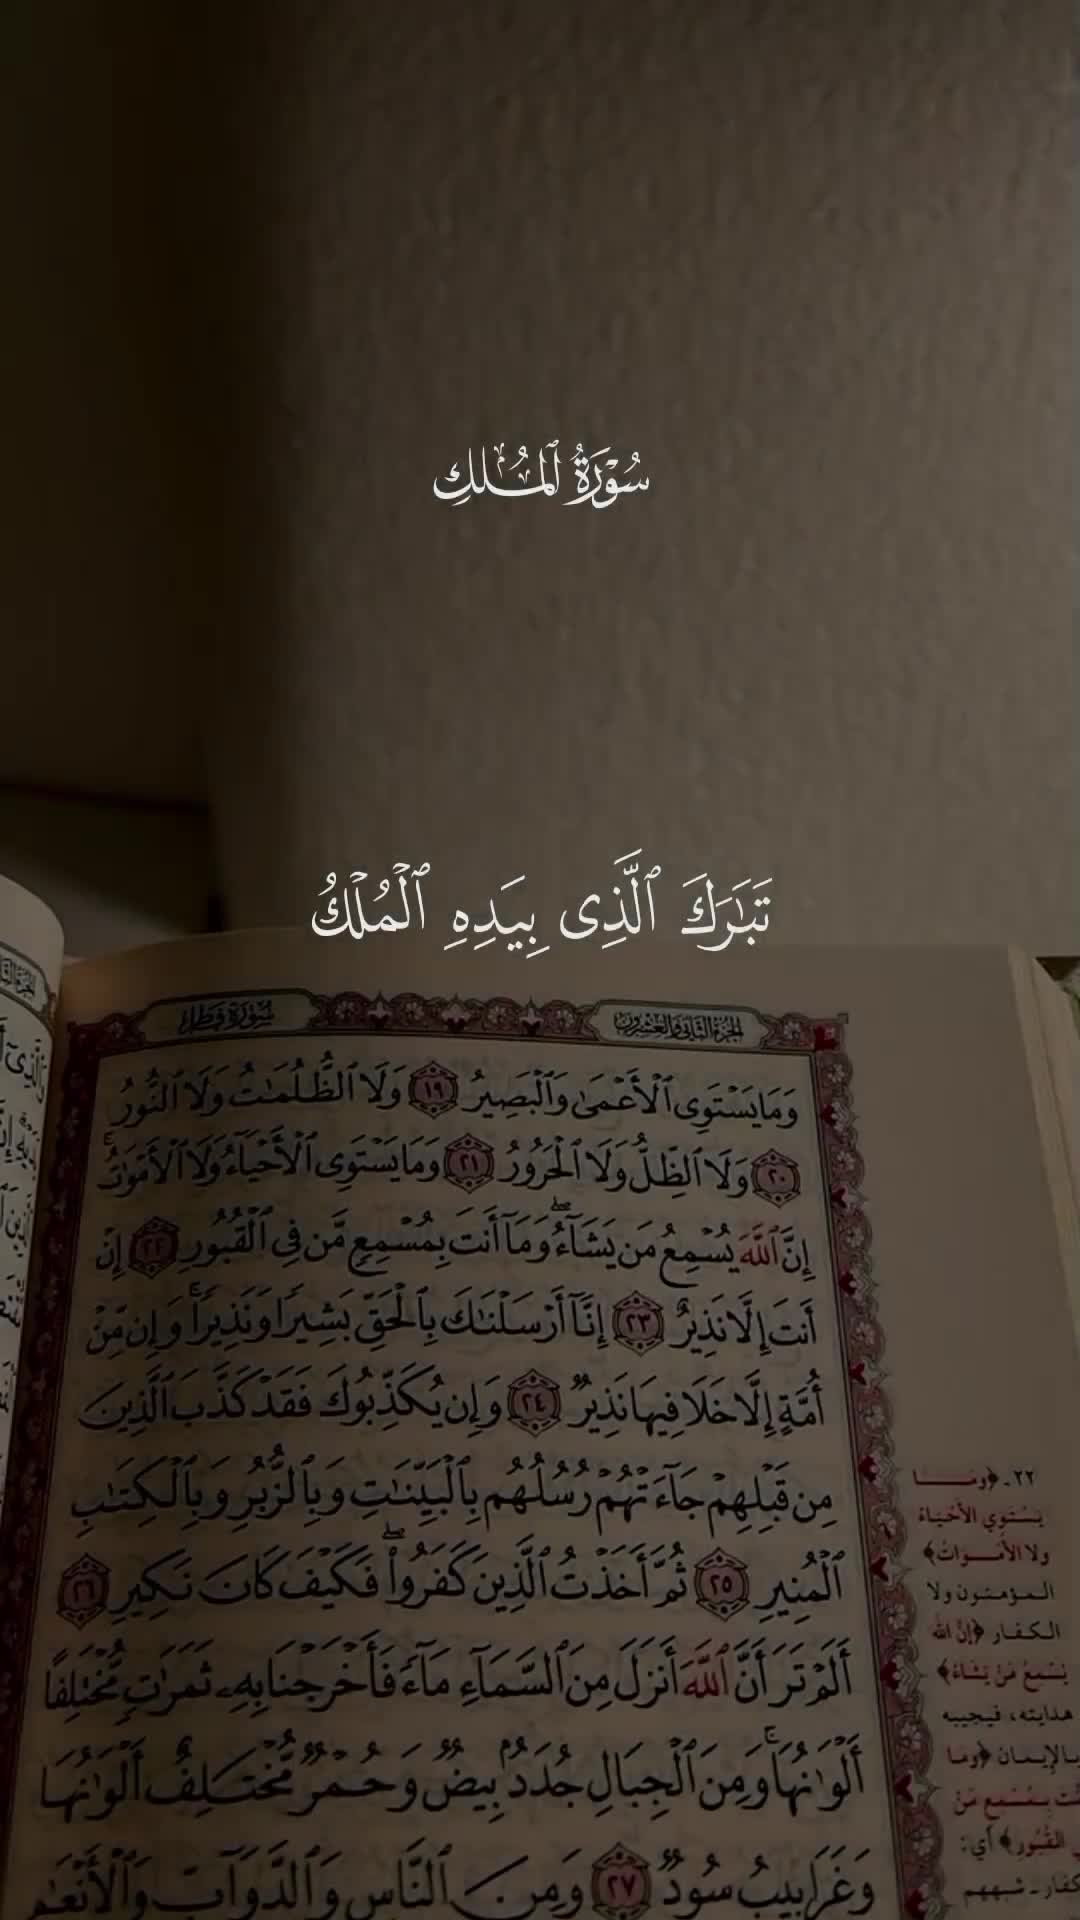 سُورَةُ ٱلْمُلْكِ
تَبَٰرَكَ ٱلَّذِى بِيَدِهِ ٱلْمُلْكُ
الجزء الثاني والعشرون
سورة فطر
وَمَا يَسْتَوِى ٱلْأَعْمَىٰ وَٱلْبَصِيرُ ١٩ وَلَا ٱلظُّلُمَٰتُ وَلَا ٱلنُّورُ
٢٠ وَلَا ٱلظِّلُّ وَلَا ٱلْحَرُورُ ٢١ وَمَا يَسْتَوِى ٱلْأَحْيَآءُ وَلَا ٱلْأَمْوَٰتُ ۚ
إِنَّ ٱللَّهَ يُسْمِعُ مَن يَشَآءُ ۖ وَمَآ أَنتَ بِمُسْمِعٍ مَّن فِى ٱلْقُبُورِ ٢٢ إِنْ
أَنتَ إِلَّا نَذِيرٌ ٢٣ إِنَّآ أَرْسَلْنَٰكَ بِٱلْحَقِّ بَشِيرًا وَنَذِيرًا ۚ وَإِن مِّنْ
أُمَّةٍ إِلَّا خَلَا فِيهَا نَذِيرٌ ٢٤ وَإِن يُكَذِّبُوكَ فَقَدْ كَذَّبَ ٱلَّذِينَ
مِن قَبْلِهِمْ جَآءَتْهُمْ رُسُلُهُم بِٱلْبَيِّنَٰتِ وَبِٱلزُّبُرِ وَبِٱلْكِتَٰبِ
ٱلْمُنِيرِ ٢٥ ثُمَّ أَخَذْتُ ٱلَّذِينَ كَفَرُوا۟ ۖ فَكَيْفَ كَانَ نَكِيرِ ٢٦
أَلَمْ تَرَ أَنَّ ٱللَّهَ أَنزَلَ مِنَ ٱلسَّمَآءِ مَآءً فَأَخْرَجْنَا بِهِۦ ثَمَرَٰتٍ مُّخْتَلِفًا
أَلْوَٰنُهَا ۚ وَمِنَ ٱلْجِبَالِ جُدَدٌۢ بِيضٌ وَحُمْرٌ مُّخْتَلِفٌ أَلْوَٰنُهَا
وَغَرَابِيبُ سُودٌ ٢٧ وَمِنَ ٱلنَّاسِ وَٱلدَّوَآبِّ وَٱلْأَنْعَٰمِ
٢٢ـ ﴿وما
يَسْتَوِي الأَحْيَاءُ
ولا الأَمْوَاتُ﴾
المؤمنون ولا
الكفار ﴿إِنَّ اللهَ
يُسْمِعُ مَنْ يَشَاءُ﴾
هدايته، فيجيبه
بالإيمان ﴿وَمَا
بِمُسْمِعٍ مَنْ
القُبُورِ﴾ أي:
ـ شبههم